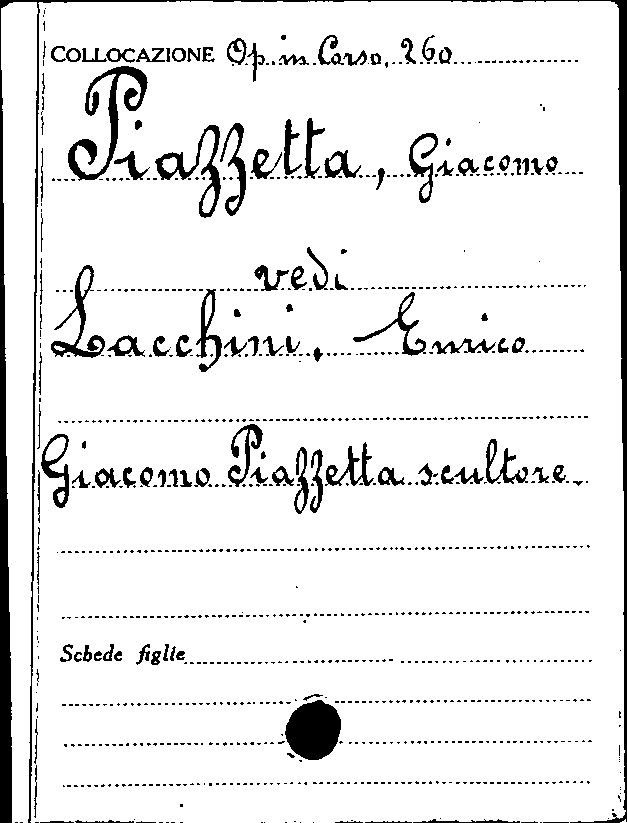 COLLOCAZIONE Op. in Corso, 260
Piazzetta, Giacomo
vedi
Lacchini, Enrico
Giacomo Piazzetta scultore.
Schede figlie